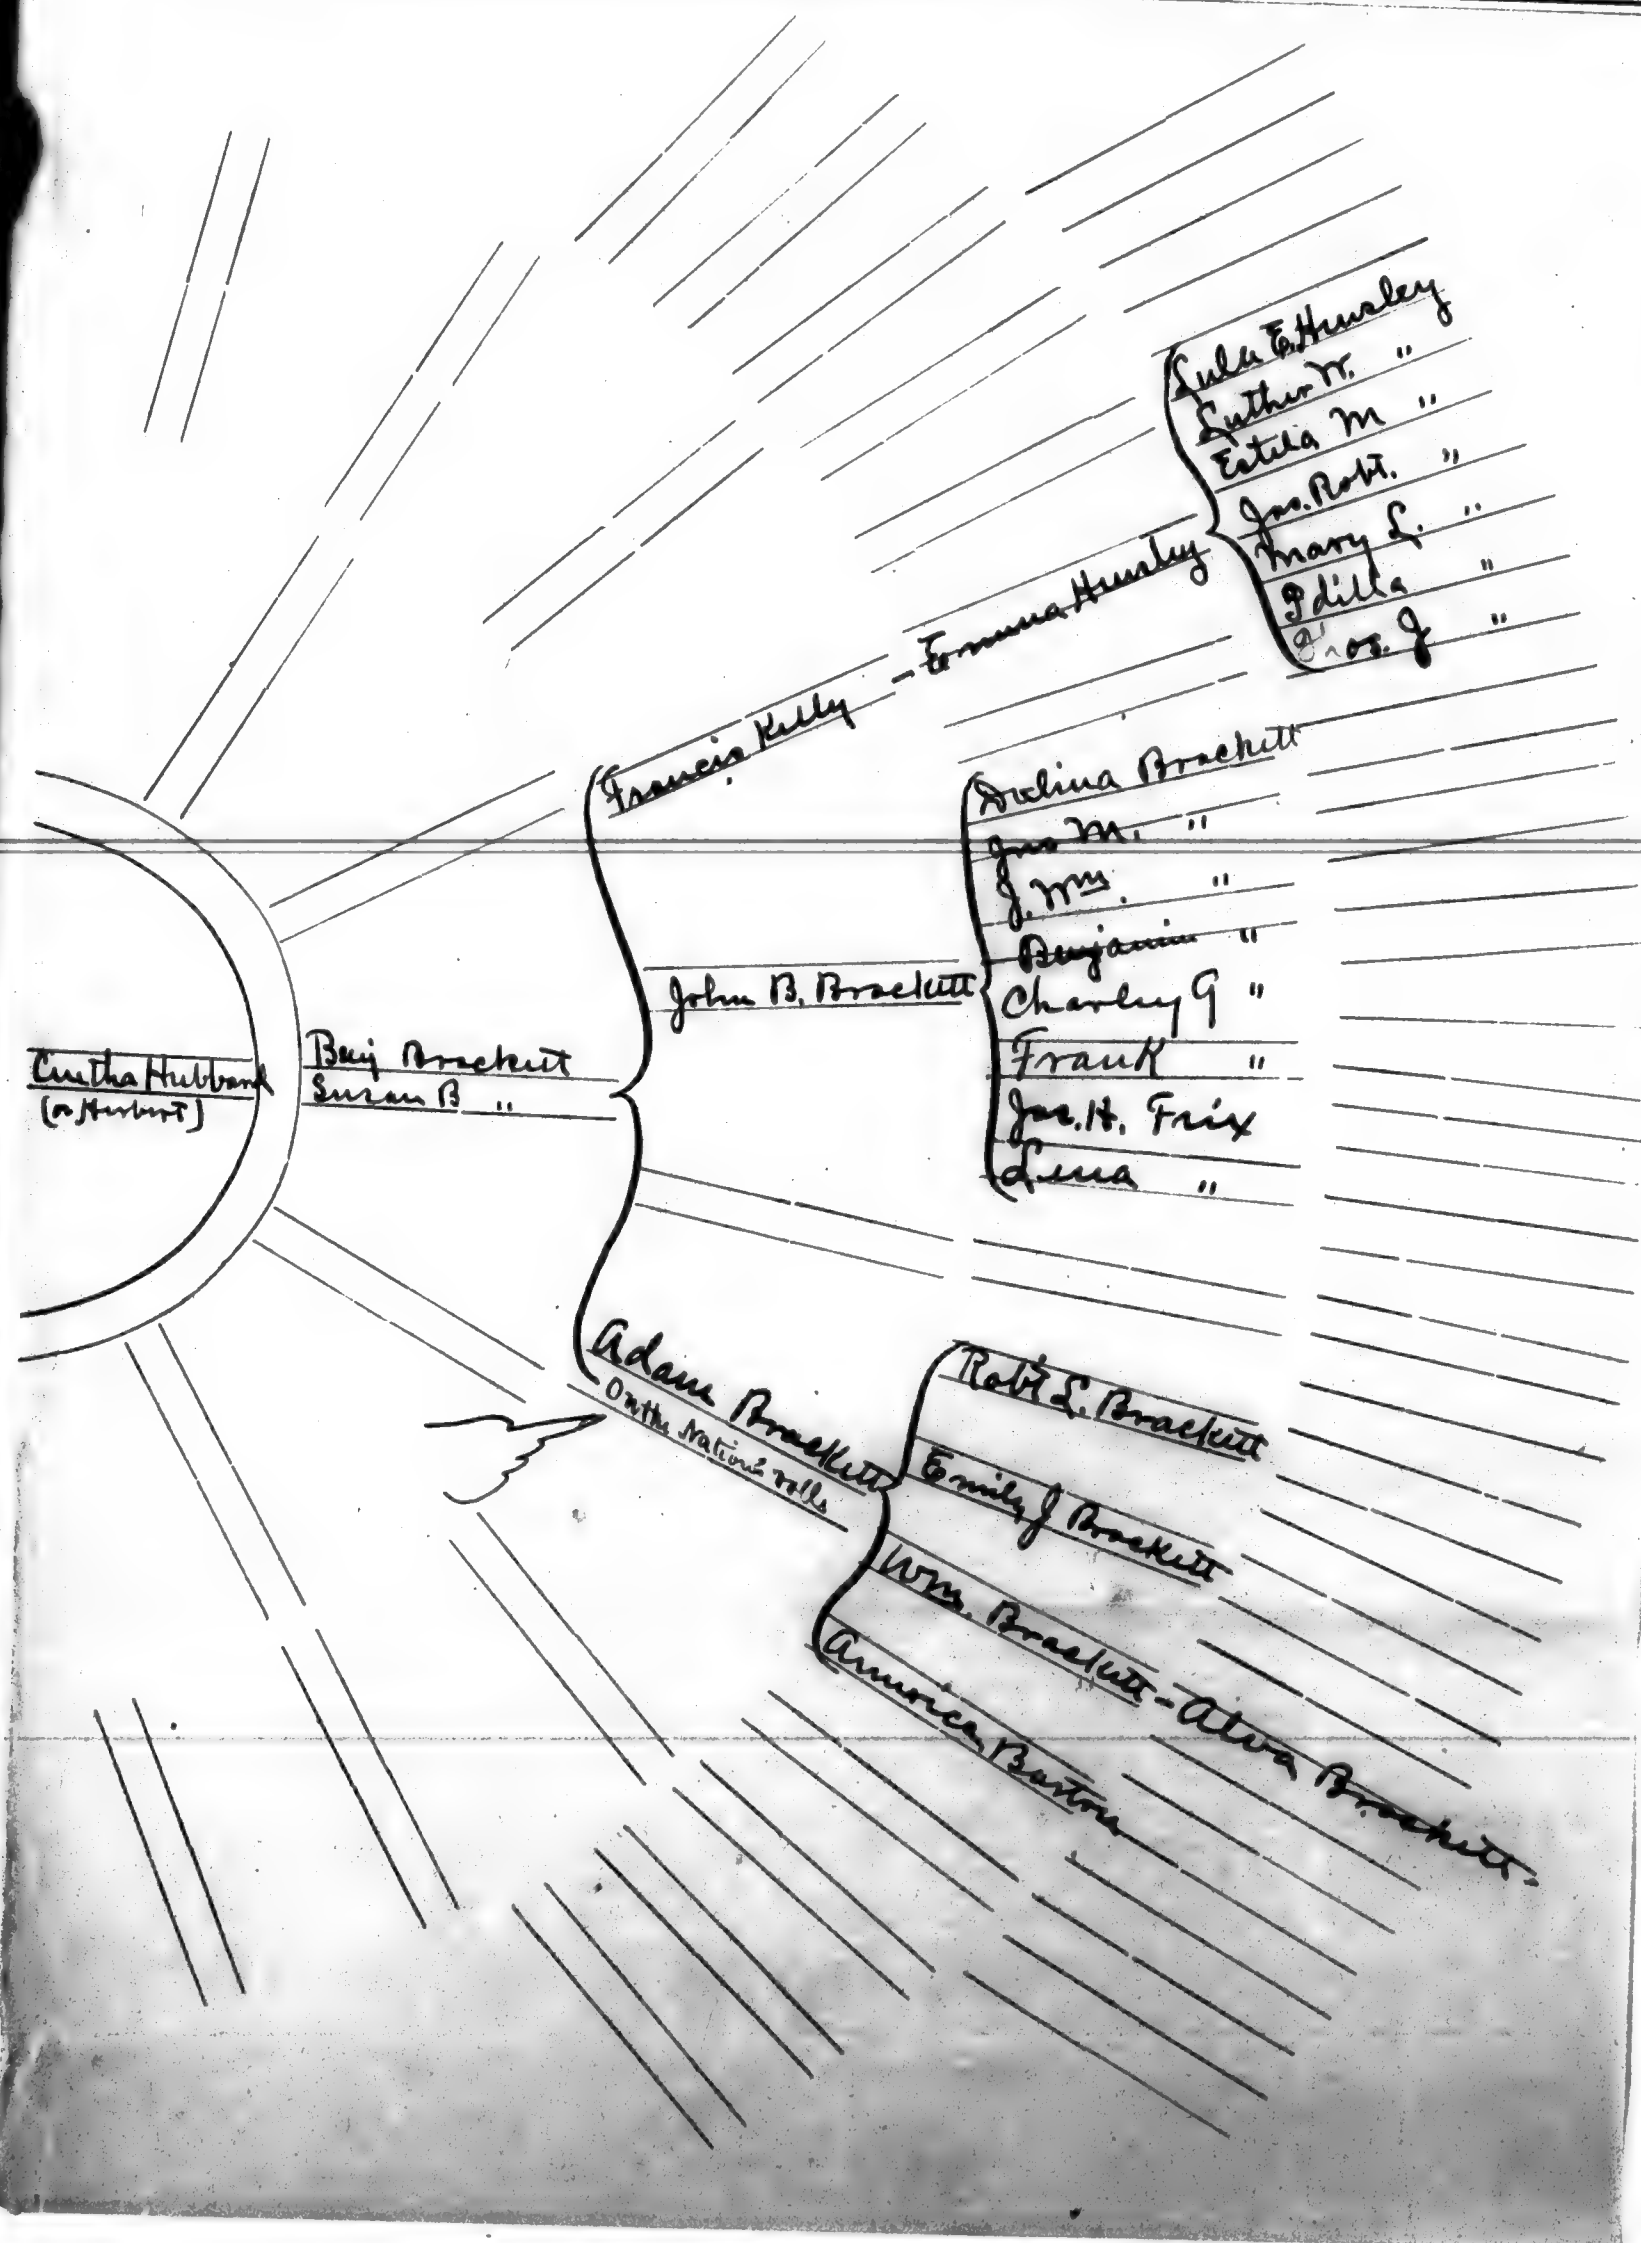 Cintha Hubbard
(or Herbert)
Benj Brackett
Susan B "
Francis Kelly - Emma Hensley
Lula E. Hensley
Luther W. "
Estella M "
Jas. Robt. "
Mary L. "
"
J "
John B. Brackett
Brackett
Jno M. "
J. Wm. "
Benjamin "
Charley G "
Frank "
Jas. H. Frix
Lena "
Adam Brackett
On the Nation's rolls
Robt L. Brackett
Emily J Brackett
Wm. Brackett - Alva Brackett
America Burton